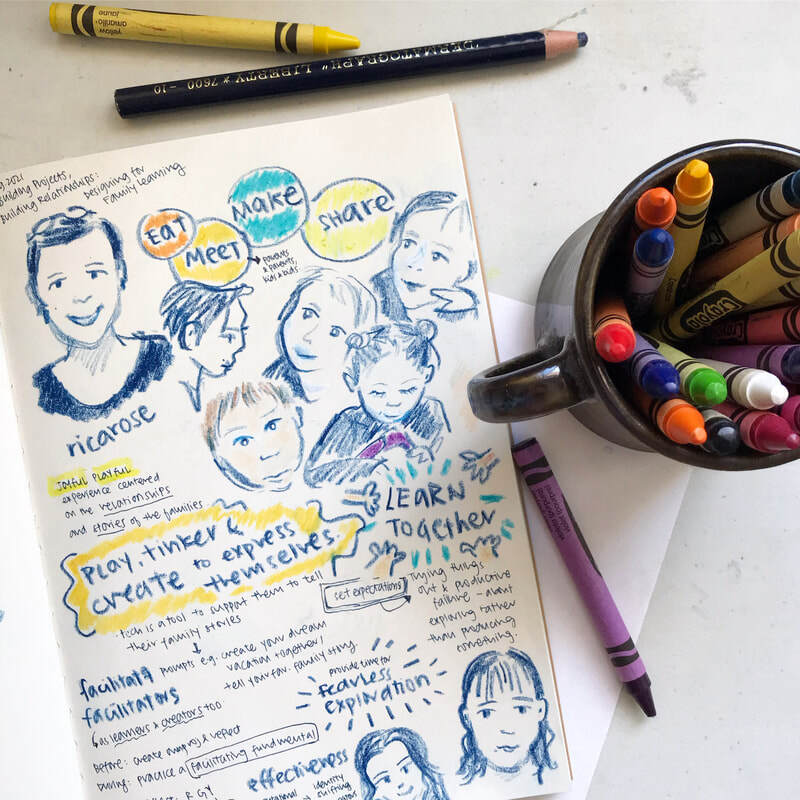 yellow
amarillo
jaune
"DERMATOGRAPH" LIBERTY * 7600 - 10
9.2021
Building Projects,
Building Relationships:
Designing for
Family Learning
EAT
MEET
MAKE
SHARE
parents
& parents,
kids & kids.
ricarose
JOYFUL PLAYFUL
experience centered
on the relationships
and stories of the families
LEARN
TOGETHER
PLAY, tinker &
create to express
themselves.
tech is a tool to support them to tell
their family stories
set expectations
Trying things
out & productive
failure - about
exploring rather
than producing
something.
prompts e.g. create your dream
vacation together!
tell your fav. family story.
facilitators
as learners & creators too
provide time for
FEARLESS
EXPLORATION
Before: create and reflect
During: practice a facilitating fundamental
effectiveness
identity
shifting
Crayola